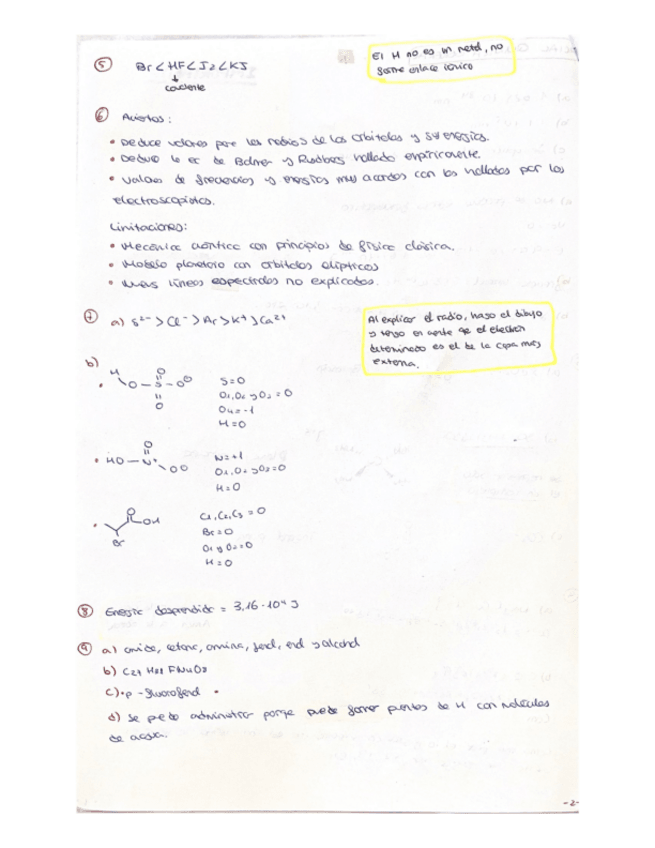 ⑤ Br < HF < I2 < KI
↓
covalente
El H no es un metal, no
forme enlace iónico
⑥ Aciertos:
• Deduce valores para los radios de los orbitales y su energía.
• Deduce la ec de Balmer y Rydberg hallada empíricamente.
• Valores de frecuencias y energías muy acordes con los hallados por los
electroscopistas.
Limitaciones:
• Mecánica cuántica con principios de física clásica.
• Modelo planetario con orbitales elípticos
• Más líneas espectrales no explicadas.
⑦ a) S²⁻ > Cl⁻ > Ar > K⁺ > Ca²⁺
Al explicar el radio, hago el dibujo
y tengo en cuenta que el electrón
determinado es el de la capa más
externa.
b)
H
O
O – S – O⊖
O
S=0
O1, O2 y O3 = 0
O4 = -1
H=0
O
HO – N⁺
O⊖
N=+1
O1, O2 y O3=0
H=0
O
OH
Br
C1, C2, C3 = 0
Br = 0
O1 y O2=0
H=0
⑧ Energía desprendida = 3,16·10⁴ J
⑨ a) amida, cetona, amina, fenol, enol y alcohol
b) C21 H21 FN4O5
c) • p-fluorofenol •
d) Se puede administrar porque puede formar puentes de H con moléculas
de agua.
-2-